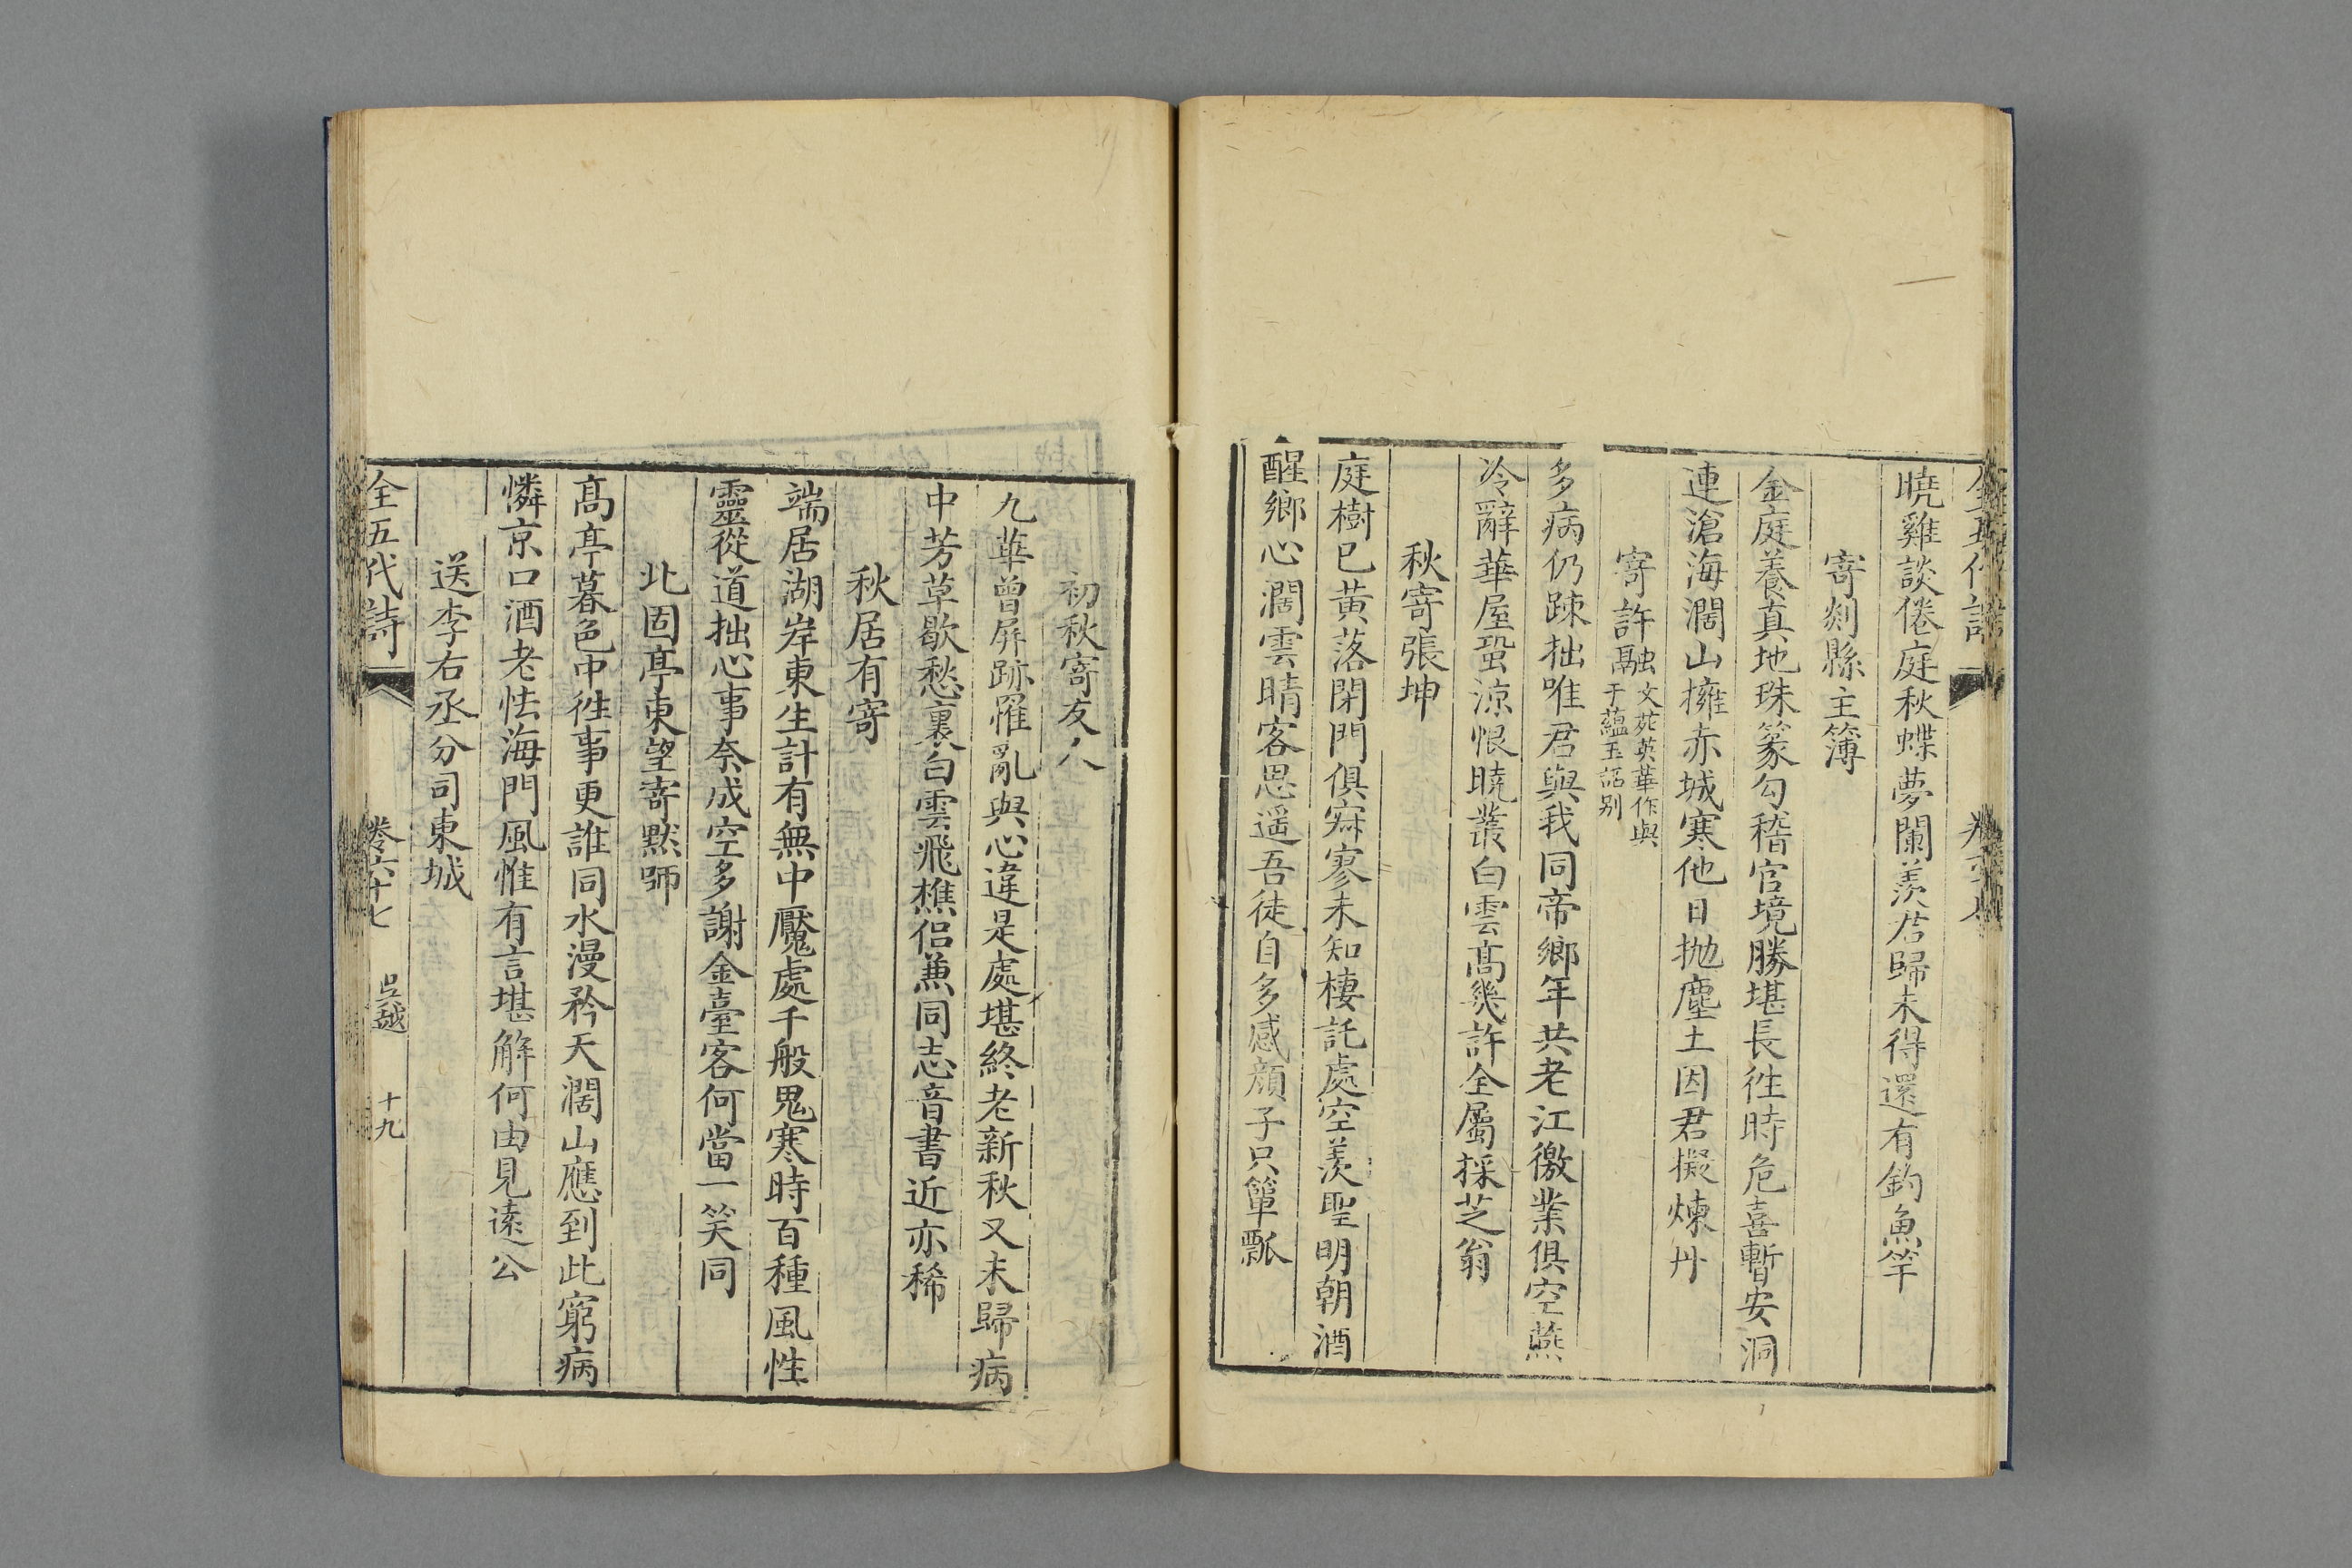 曉雞談倦庭秋蝶夢闌羨君歸未得還有釣魚竿
寄剡縣主簿
金庭養真地珠篆勾稽官境勝堪長徃時危喜暫安洞
連滄海濶山擁赤城寒他日拋塵土因君擬煉丹
寄許融
文苑英華作與
于蘊玉話别
多病仍踈拙唯君與我同帝鄉年共老江徼業俱空燕
冷辭華屋蛩涼恨曉叢白雲高幾許全屬採芝翁
秋寄張坤
庭樹已黃落閉門俱寂寥未知棲託處空羨聖明朝酒
醒鄉心濶雲晴客思遥吾徒自多感顏子只簞瓢
初秋寄友人
九華曾屏跡罹亂與心違是處堪終老新秋又未歸病
中芳草歇愁裏白雲飛樵侣蕪同志音書近亦稀
秋居有寄
端居湖岸東生計有無中魘處千般鬼寒時百種風性
靈從道拙心事奈成空多謝金臺客何當一笑同
北固亭東望寄默師
高亭暮色中徃事更誰同水漫矜天濶山應到此窮病
憐京口酒老怯海門風惟有言堪解何由見遠公
送李右丞分司東城
全五代詩
卷六十七
吳越
十九